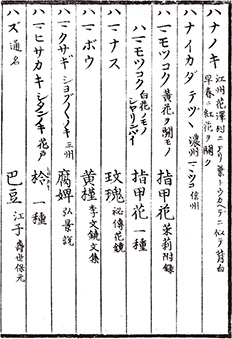 ハナノキ 江州花澤村ニアリ葉トウカヘデニ似テ背白
早春ニ紅花ヲ開ク
ハナイカダ テツヽ 濃州 マヽツコ 信州
ハマモツコク 黄花ヲ開モノ 指甲花 茉莉附録
ハマモツコク 白花ノモノ シヤリンバイ 指甲花 一種
ハマナス 玫瑰 秘傳花鏡
ハマボウ 黄槿 李文饒文集
ハマクサギ シヨブノキ 三州 腐婢 弘景説
ハマヒサカキ 花戸 柃 一種
ハズ 通名 巴豆 江子 壽世保元